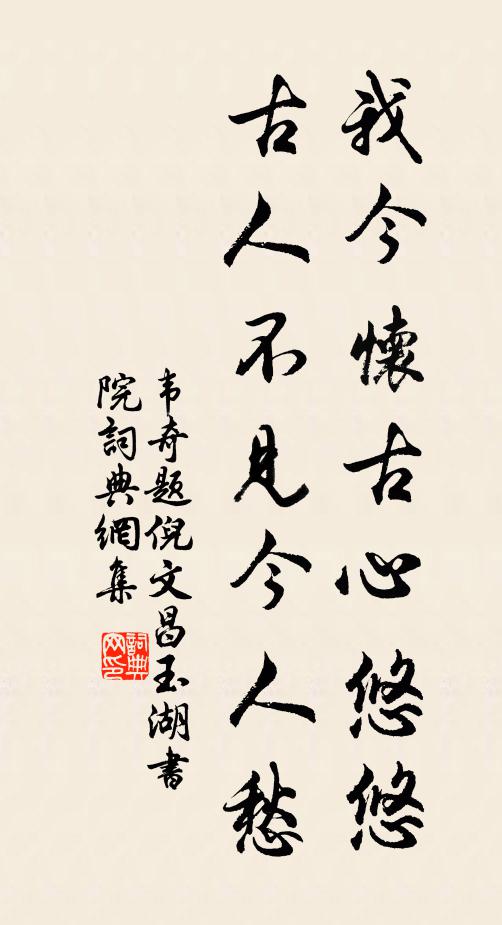 我今懷古心悠悠
古人不見今人愁
韦奇题倪文昌玉湖書
院詞典網集
詞典
网印